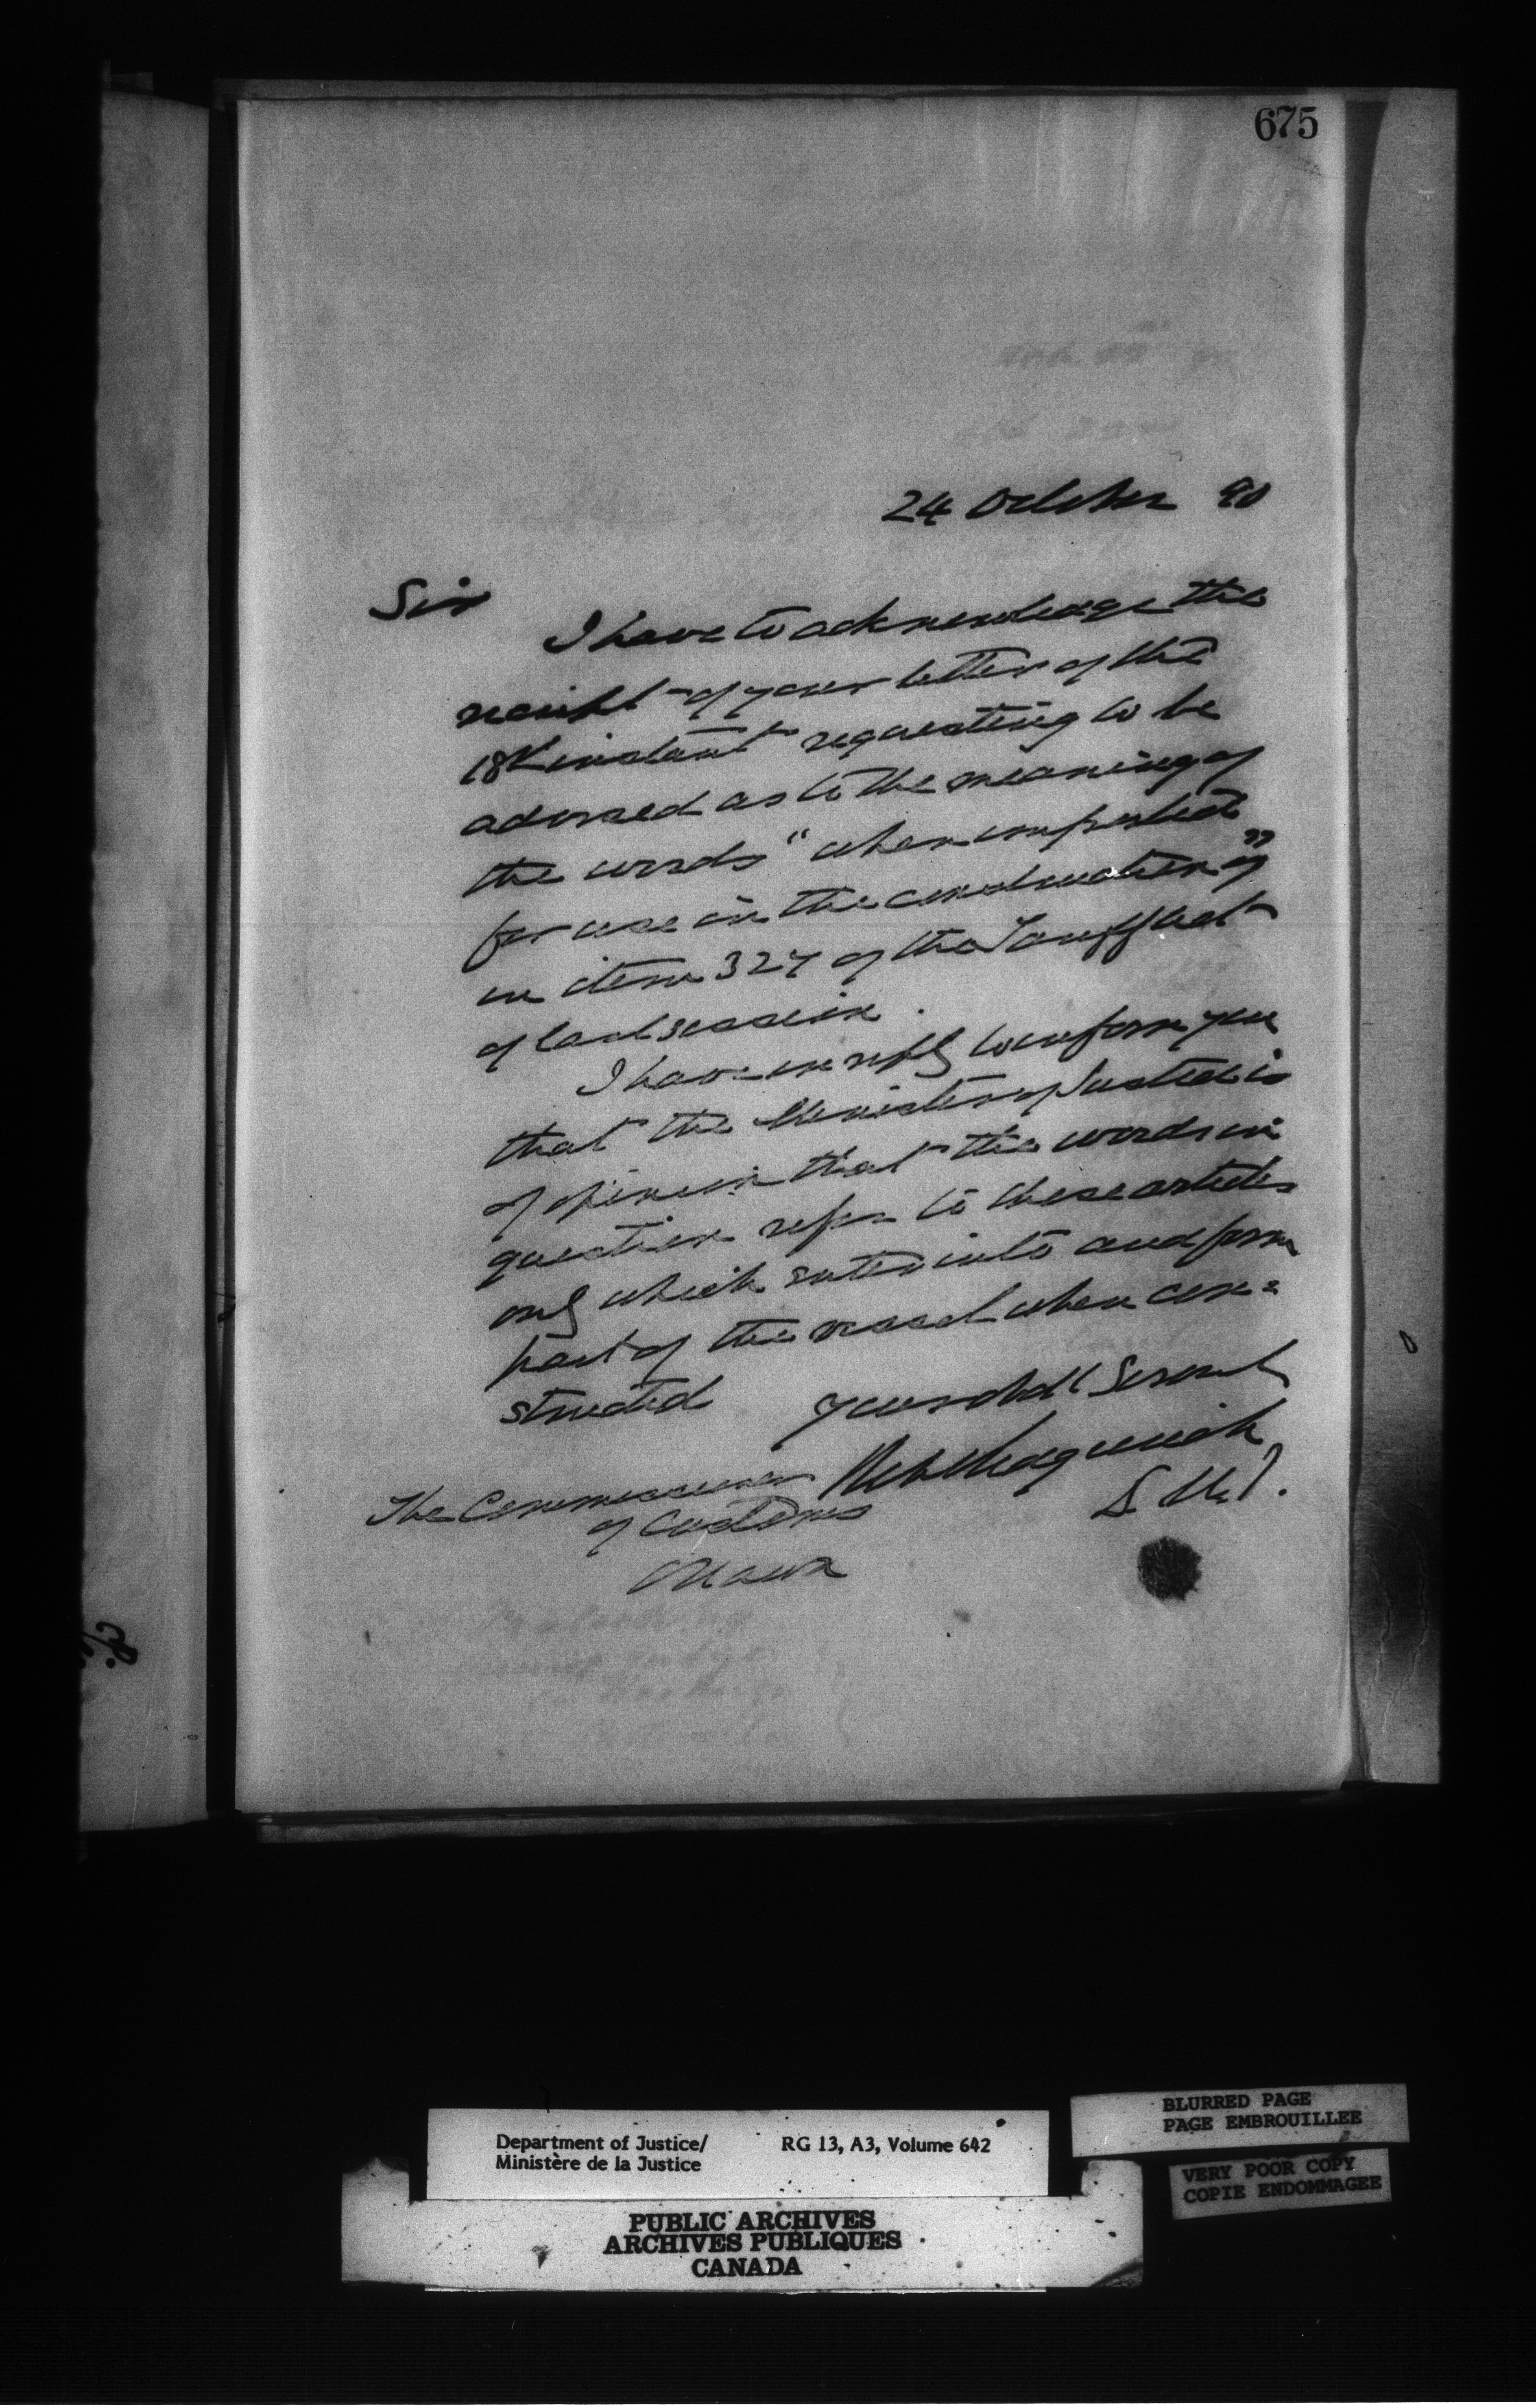 675
24 October 90
Sir
I have to acknowledge the
receipt of your letter of the
18th instant requesting to be
advised as to the meaning of
the words "when imported
for use in the construction of"
in item 327 of the Tariff Act
of last session.
I have in reply to inform you
that the Minister of Justice is
of opinion that the words in
question refer to those articles
only which enter into and form
part of the vessel when con=
structed
Your obdt Servant
Sedgewick
D.M.J.
The Commissioner
of Customs
Ottawa
Department of Justice/ RG 13, A3, Volume 642
Ministère de la Justice
PUBLIC ARCHIVES
ARCHIVES PUBLIQUES
CANADA
BLURRED PAGE
PAGE EMBROUILLEE
VERY POOR COPY
COPIE ENDOMMAGEE